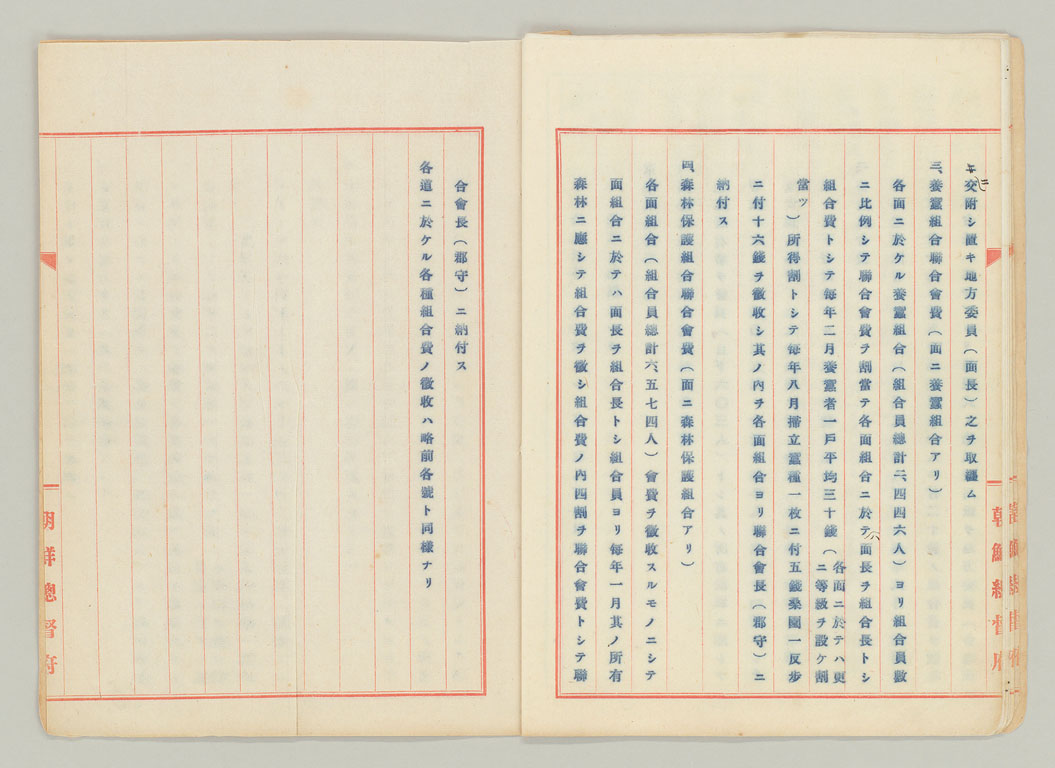 ニ交附シ置キ地方委員(面長)之ヲ取纒ム
三、養蠶組合聯合會費(面ニ養蠶組合アリ)
各面ニ於ケル養蠶組合(組合員總計二、四四六人)ヨリ組合員數
ニ比例シテ聯合會費ヲ割當テ各面組合ニ於テハ面長ヲ組合長トシ
組合費トシテ毎年二月養蠶者一戶平均三十錢(各面ニ於テハ更
ニ等級ヲ設ケ割
當ツ)所得割トシテ毎年八月掃立蠶種一枚ニ付五錢桑園一反步
ニ付十六錢ヲ徵收シ其ノ內ヲ各面組合ヨリ聯合會長(郡守)ニ
納付ス
四、森林保護組合聯合會費(面ニ森林保護組合アリ)
各面組合(組合員總計六、五七四人)會費ヲ徵收スルモノニシテ
面組合ニ於テハ面長ヲ組合長トシ組合員ヨリ毎年一月其ノ所有
森林ニ應シテ組合費ヲ徵シ組合費ノ內四割ヲ聯合會費トシテ聯
朝鮮總督府
合會長(郡守)ニ納付ス
各道ニ於ケル各種組合費ノ徵收ハ略前各號ト同樣ナリ
朝鮮總督府